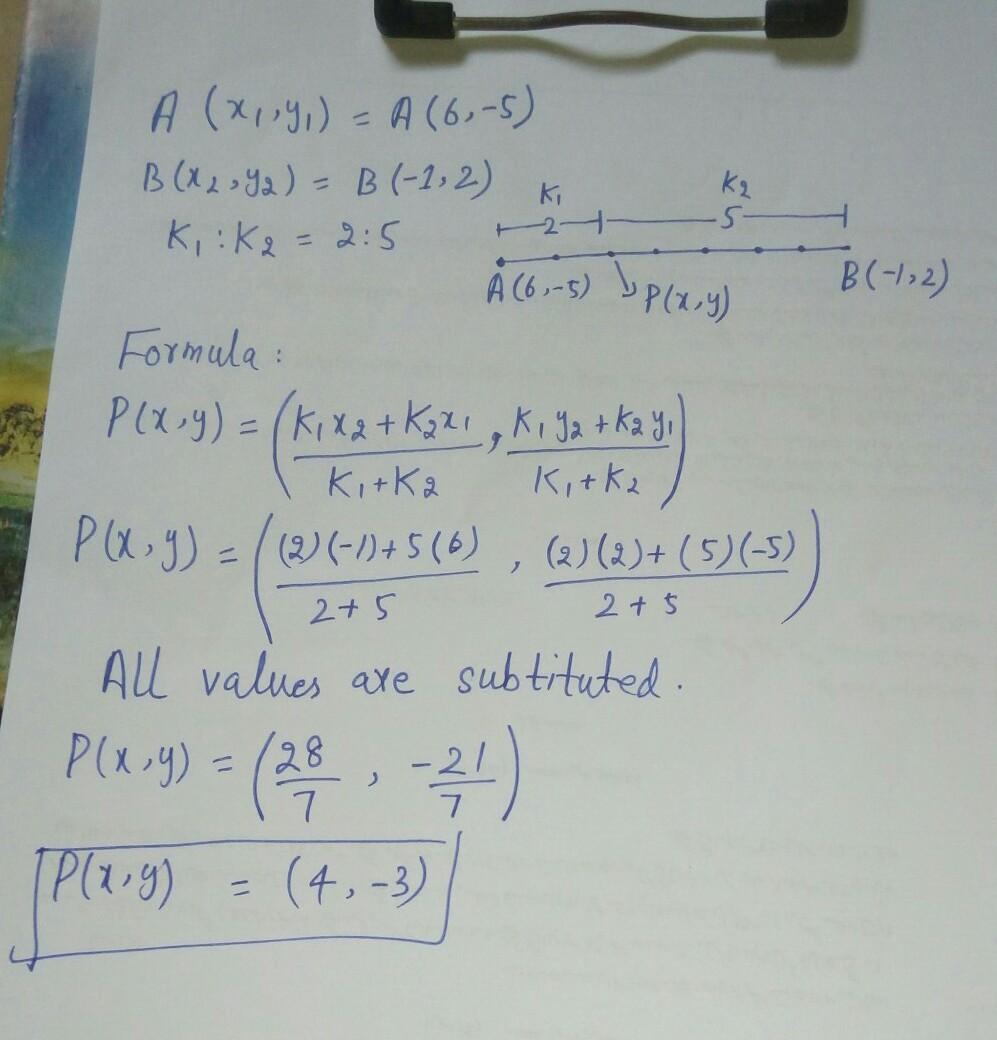 A (x₁,y₁) = A(6,-5)
B(x₂,y₂) = B(-1,2)
K₁:K₂ = 2:5
K₁ K₂
2 5
A(6,-5) P(x,y) B(-1,2)
Formula:
P(x,y) = (K₁x₂+K₂x₁/K₁+K₂, K₁y₂+K₂y₁/K₁+K₂)
P(x,y) = ((2)(-1)+5(6)/2+5, (2)(2)+(5)(-5)/2+5)
All values are subtituted.
P(x,y) = (28/7, -21/7)
P(x,y) = (4,-3)